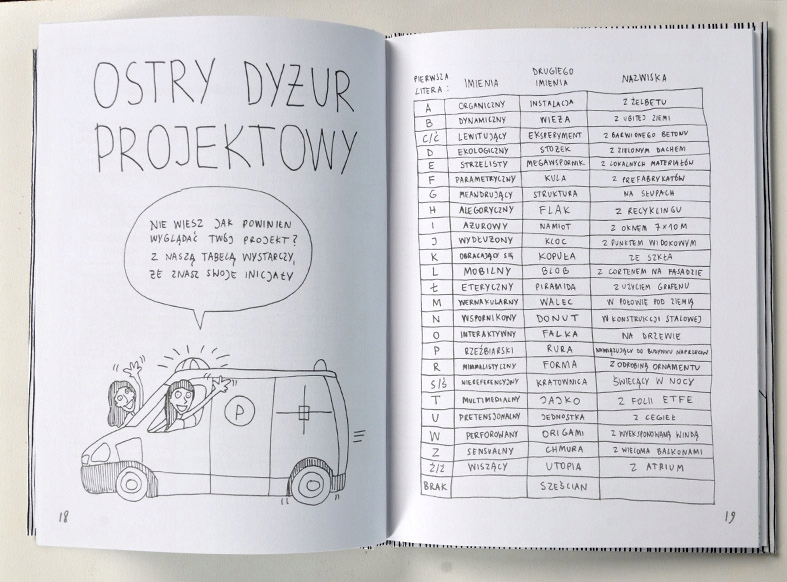 OSTRY DYŻUR
PROJEKTOWY
NIE WIESZ JAK POWINIEN
WYGLĄDAĆ TWÓJ PROJEKT?
Z NASZĄ TABELĄ WYSTARCZY,
ŻE ZNASZ SWOJE INICJAŁY
P
18
PIERWSZA LITERA: IMIENIA DRUGIEGO IMIENIA NAZWISKA
A ORGANICZNY INSTALACJA Z ŻELBETU
B DYNAMICZNY WIEŻA Z UBITEJ ZIEMI
C/Ć LEWITUJĄCY EKSPERYMENT Z BARWIONEGO BETONU
D EKOLOGICZNY STOŻEK Z ZIELONYM DACHEM
E STRZELISTY MEGAWSPORNIK Z LOKALNYCH MATERIAŁÓW
F PARAMETRYCZNY KULA Z PREFABRYKATÓW
G MEANDRUJĄCY STRUKTURA NA SŁUPACH
H ALEGORYCZNY FLAK Z RECYKLINGU
I AŻUROWY NAMIOT Z OKNEM 7×10 M
J WYDŁUŻONY KLOC Z PUNKTEM WIDOKOWYM
K OBRACAJĄCY SIĘ KOPUŁA ZE SZKŁA
L MOBILNY BLOB Z CORTENEM NA FASADZIE
Ł ETERYCZNY PIRAMIDA Z UŻYCIEM GRAFENU
M WERNAKULARNY WALEC W POŁOWIE POD ZIEMIĄ
N WSPORNIKOWY DONUT W KONSTRUKCJI STALOWEJ
O INTERAKTYWNY FALKA NA DRZEWIE
P RZEŹBIARSKI RURA NAWIĄZUJĄCY DO BUDYNKU NAPRZECIW
R MINIMALISTYCZNY FORMA Z ODROBINĄ ORNAMENTU
S/Ś NIEREFERENCYJNY KRATOWNICA ŚWIECĄCY W NOCY
T MULTIMEDIALNY JAJKO Z FOLII ETFE
U PRETENSJONALNY JEDNOSTKA Z CEGIEŁ
W PERFOROWANY ORIGAMI Z WYEKSPONOWANĄ WINDĄ
Z SENSUALNY CHMURA Z WIELOMA BALKONAMI
Ż/Ź WISZĄCY UTOPIA Z ATRIUM
BRAK SZEŚCIAN
19